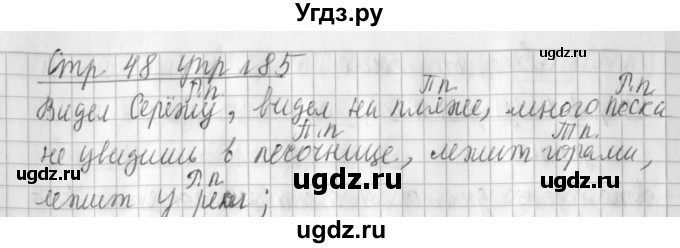 Угдз.ру
Стр 48 упр 185
Р.п П.п Р.п.
Видел Серёжу, видел на пляже, много песка
П.п Т.п.
не увидишь в песочнице, лежит горами,
ugdz.ru ugdz.ru ugdz.ru
Р.п
лежит у реки;
ugdz.ru ugdz.ru